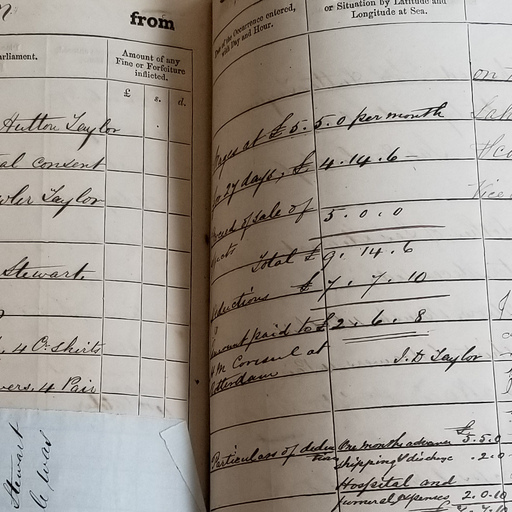 from
arliament.
Amount of any
Fine or Forfeiture
inflicted.
£ s. d.
Hutton Taylor
al consent
wler Taylor
Stewart
, 4 O. shirts
wers, 4 Pair
Stewart
le was
of the Occurrence entered,
with Day and Hour.
or Situation by Latitude and
Longitude at Sea.
ages at £5.5.0 per month
for 27 days, £4.14.6
of sale of 5.0.0
Total £9.14.6
eductions £7.7.10
mount paid to £2.6.8
H M Consul at
Rotterdam
J. D. Taylor
Particulars of deduc
tions
One months advance £5.5.0
Shipping & discharge .2.0
Hospital and
funeral expenses 2.0.10
£7.7.10
on